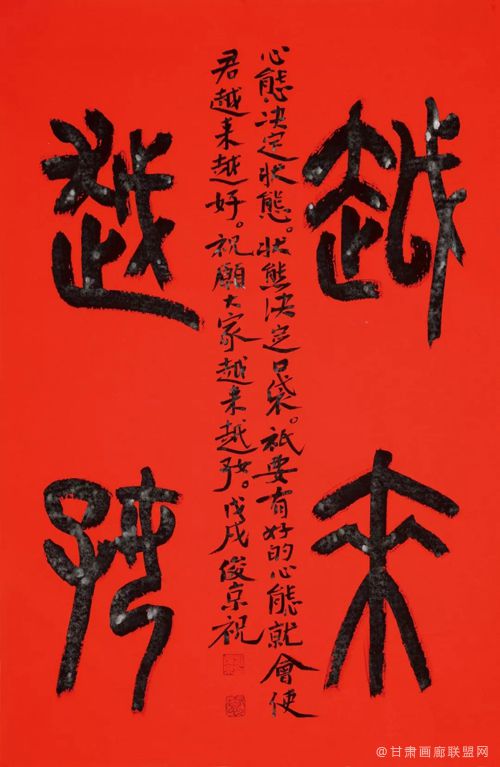 越
来
越
好
心態决定狀態。狀態决定口袋。祇要有好的心態就會使
君越来越好。祝願大家越来越好。戊戌俊京祝
@甘肃画廊联盟网